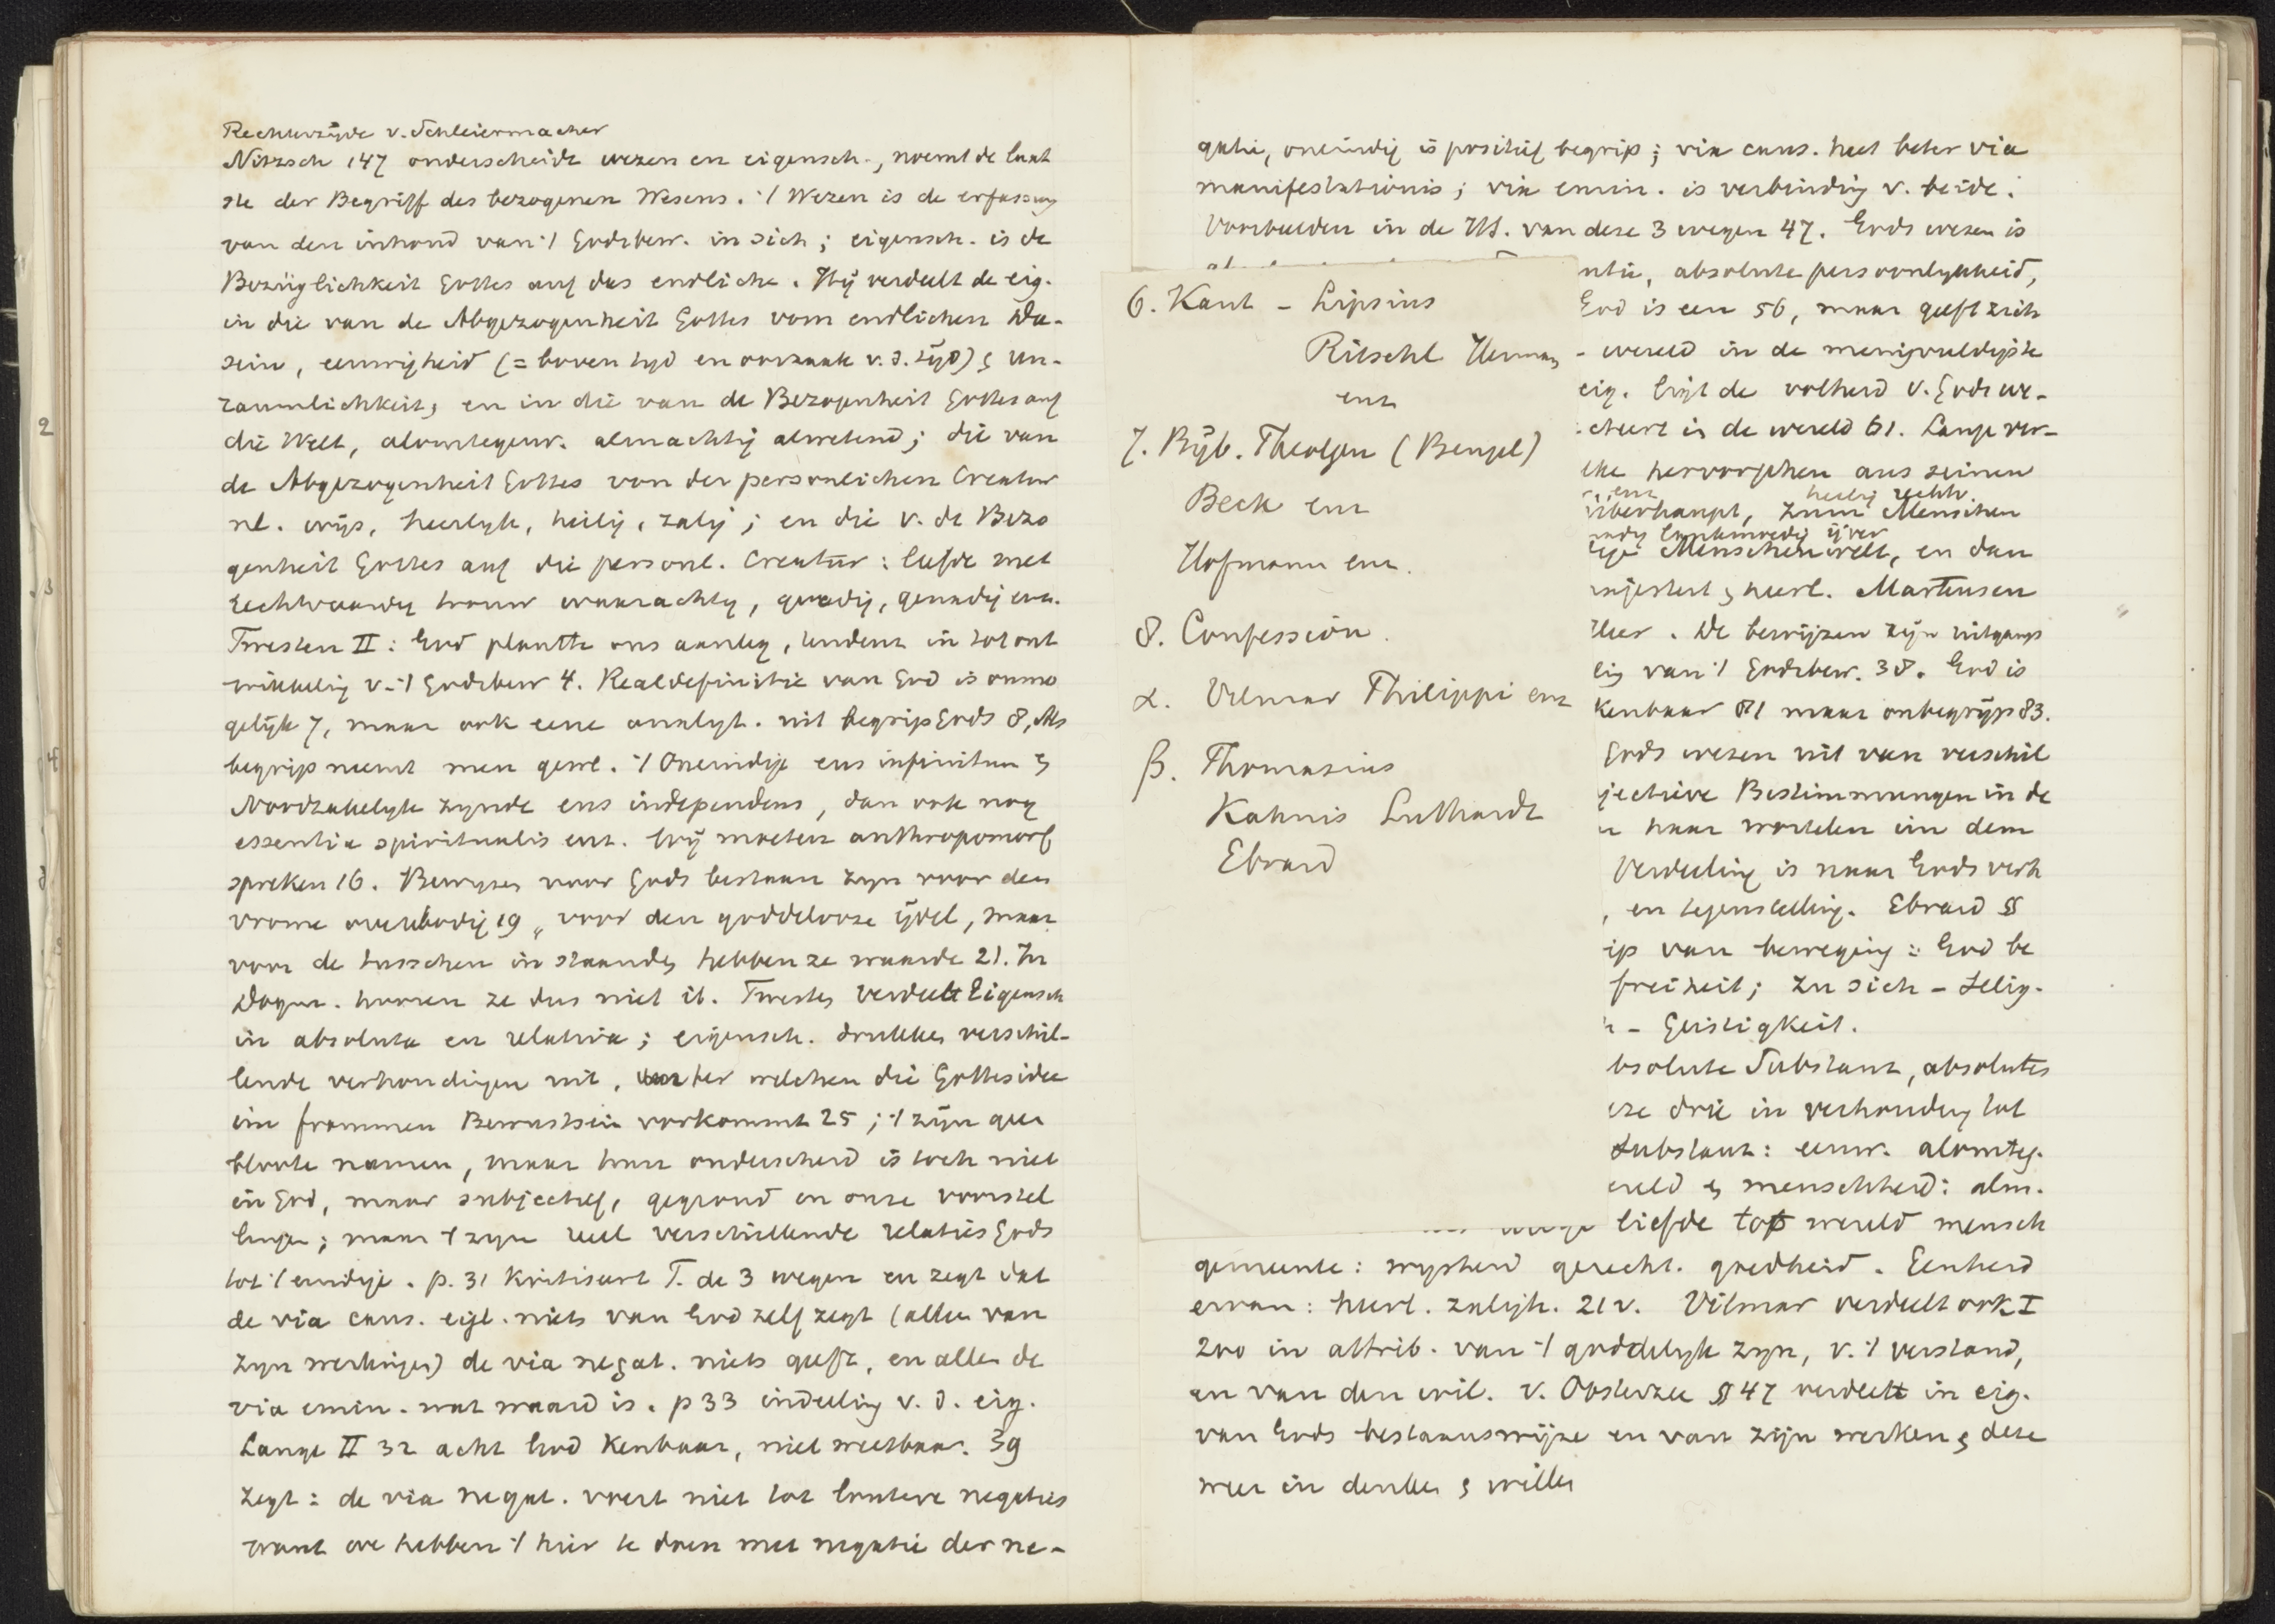 Rechterzijde v. Schleiermacher
Nitzsch 147 onderscheidt wezen en eigensch., noemt de laat
ste der Begriff des bezogenen Wesens. 't Wezen is de erfassung
van den inhoud van 't Godsbew. in sich; eigensch. is de
Bezüglichkeit Gottes auf das endliche. Hij verdeelt de eig.
in die van de Abgezogenheit Gottes vom endlichen Da-
sein, eeuwigheid (= boven tyd en oorzaak v. d. tijd) & Un-
raumlichkeit, en in die van de Bezogenheit Gottes auf
die Welt, alomtegenw. almachtig alwetend; die van
de Abgezogenheit Gottes von der personlichen Creatur
nl. wijs, heerlyk, heilig, zalig; en die v. de Bezo
genheit Gottes auf die personl. Creatür: liefde met
rechtvaardig trouw waarachtig, goedig, genadig enz.
Twesten II: God plantte ons aanleg, tendenz in tot ont
wikkelig v. 't Godsbew 4. Realdefinitie van God is onmo
gelijk 7, maar ook eene analyt. uit begrip Gods 8, Als
begrip neemt men gewl. 't Oneindige ens infinitum &
Noodzakelyk zynde ens independens, dan ook nog
essentia spiritualis enz. Wij moeten anthropomorf
spreken 16. Bewyzen voor Gods bestaan zyn voor den
vrome overbodig 19 „ voor den goddelooze ijdel, maar
voor de tusschen in staande hebben ze waarde 21. In
Dogm. hooren ze dus niet it. Twesten verdeelt Eigensch
in absoluta en relativa; eigensch. drukken verschil-
lende verhoudingen uit, unter welchen die Gottesidee
im frommen Bewustsein vorkommt 25; 't zijn geen
bloote namen, maar hun onderscheid is toch niet
in God, maar subjectief, gegrond in onze voorstel
lingen; maar 't zyn reel verschillende relaties Gods
tot 't eindige. p. 31 Kritiseert T. de 3 wegen en zegt dat
de via caus. eigl. niets van God zelf zegt (alleen van
zyn werkingen) de via negat. niets geeft, en alleen de
via emin. wat waard is. p 33 indeeling v. d. eig.
Lange II 32 acht God Kenbaar, niet weetbaar. 39
zegt: de via negat. voert niet tot lautere negaties
want we hebben 't hier te doen met negatie der ne-
gatie, oneindig is positief begrip; via caus. heet beter via
manifestationis; via emin. is verbinding v. beide.
Voorbeelden in de HS. van deze 3 wegen 47. Gods wezen is
ntie, absolute persoonlykheid,
God is een 56, maar geeft zich
- wereld in de menigvuldigste
eig. ligt de volheid v. Gods we-
cteert in de wereld 61. Lange ver-
che hervorgehen aus seinen
enz heilig rechtv.
überhaupt, zum Menschen
nadig lankmoedig ijver
Menschenwelt, en dan
majesteit & heerl. Martensen
Ileer. De bewijzen zijn uitgangs
lig van 't Godsbew. 38. God is
kenbaar 81 maar onbegrijp 83.
Gods wezen uit van verschil
jectieve Bestimmungen in de
n haar wortelen im dem
Verdeeling is naar Gods verh
, en tegenstelling. Ebrard §
ip van beweging: God be
freiheit; zu sich - Selig-
- Geistigkeit.
bsolute Substanz, absolutes
eze drie in verhouding tot
Substanz: eeuw. alomteg.
ereld & menschheid: alm.
liefde tot wereld mensch
gemeente: wysheid gerecht. goedheid. Eenheid
ervan: heerl. zaligh. 212. Vilmar verdeelt ook I
200 in attrib. van 't goddelyk zyn, v. 't verstand,
en van den wil. V. Oosterzee § 47 verdeelt in eig.
van Gods bestaanswijze en van zijn werken & deze
weer in denken & willen
6. Kant - Lipsius
Ritschl Herrmann
enz
7. Bijb. Theologen (Bengel)
Beck enz
Hofmann enz.
8. Confession.
α. Vilmar Philippi enz
β. Thomasius
Kahnis Luthardt
Ebrard
2
3
4